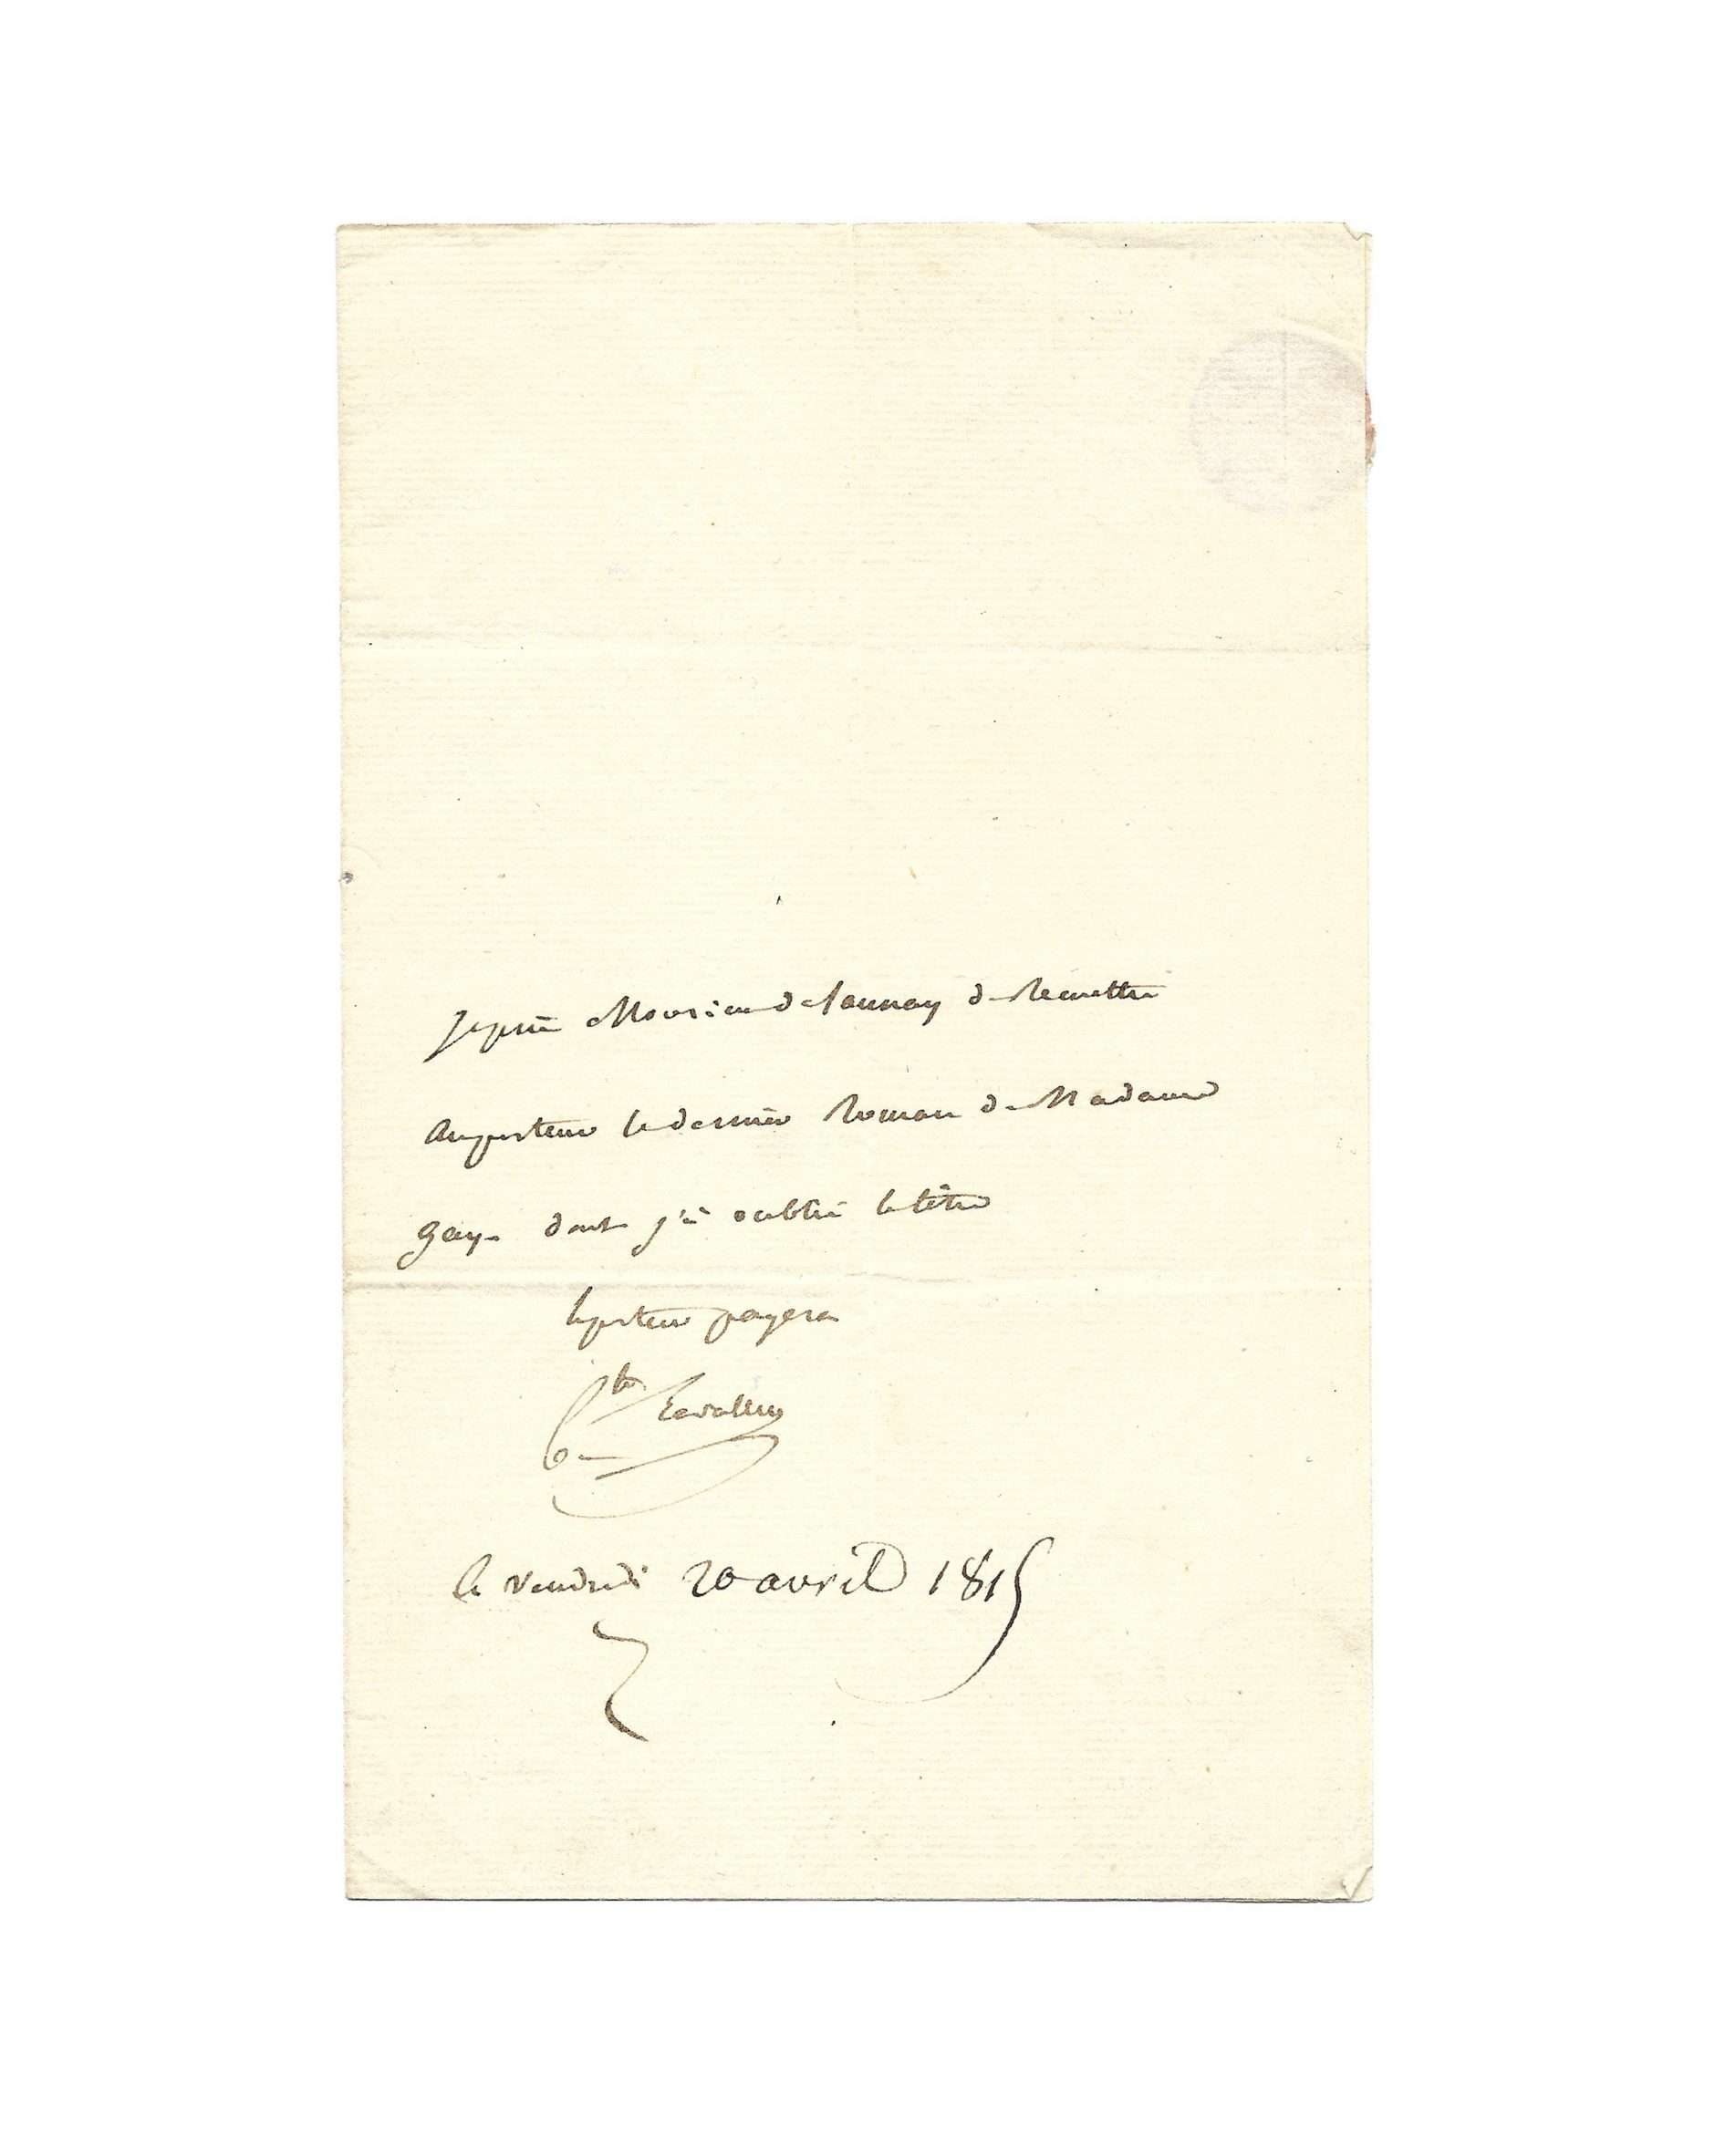 je prie Monsieur delaunay de Remettre
au porteur le dernier Roman de Madame
gay dont j'ai oublié le titre
le porteur payera
Cte Lavallette
le vendredi 20 avril 1815